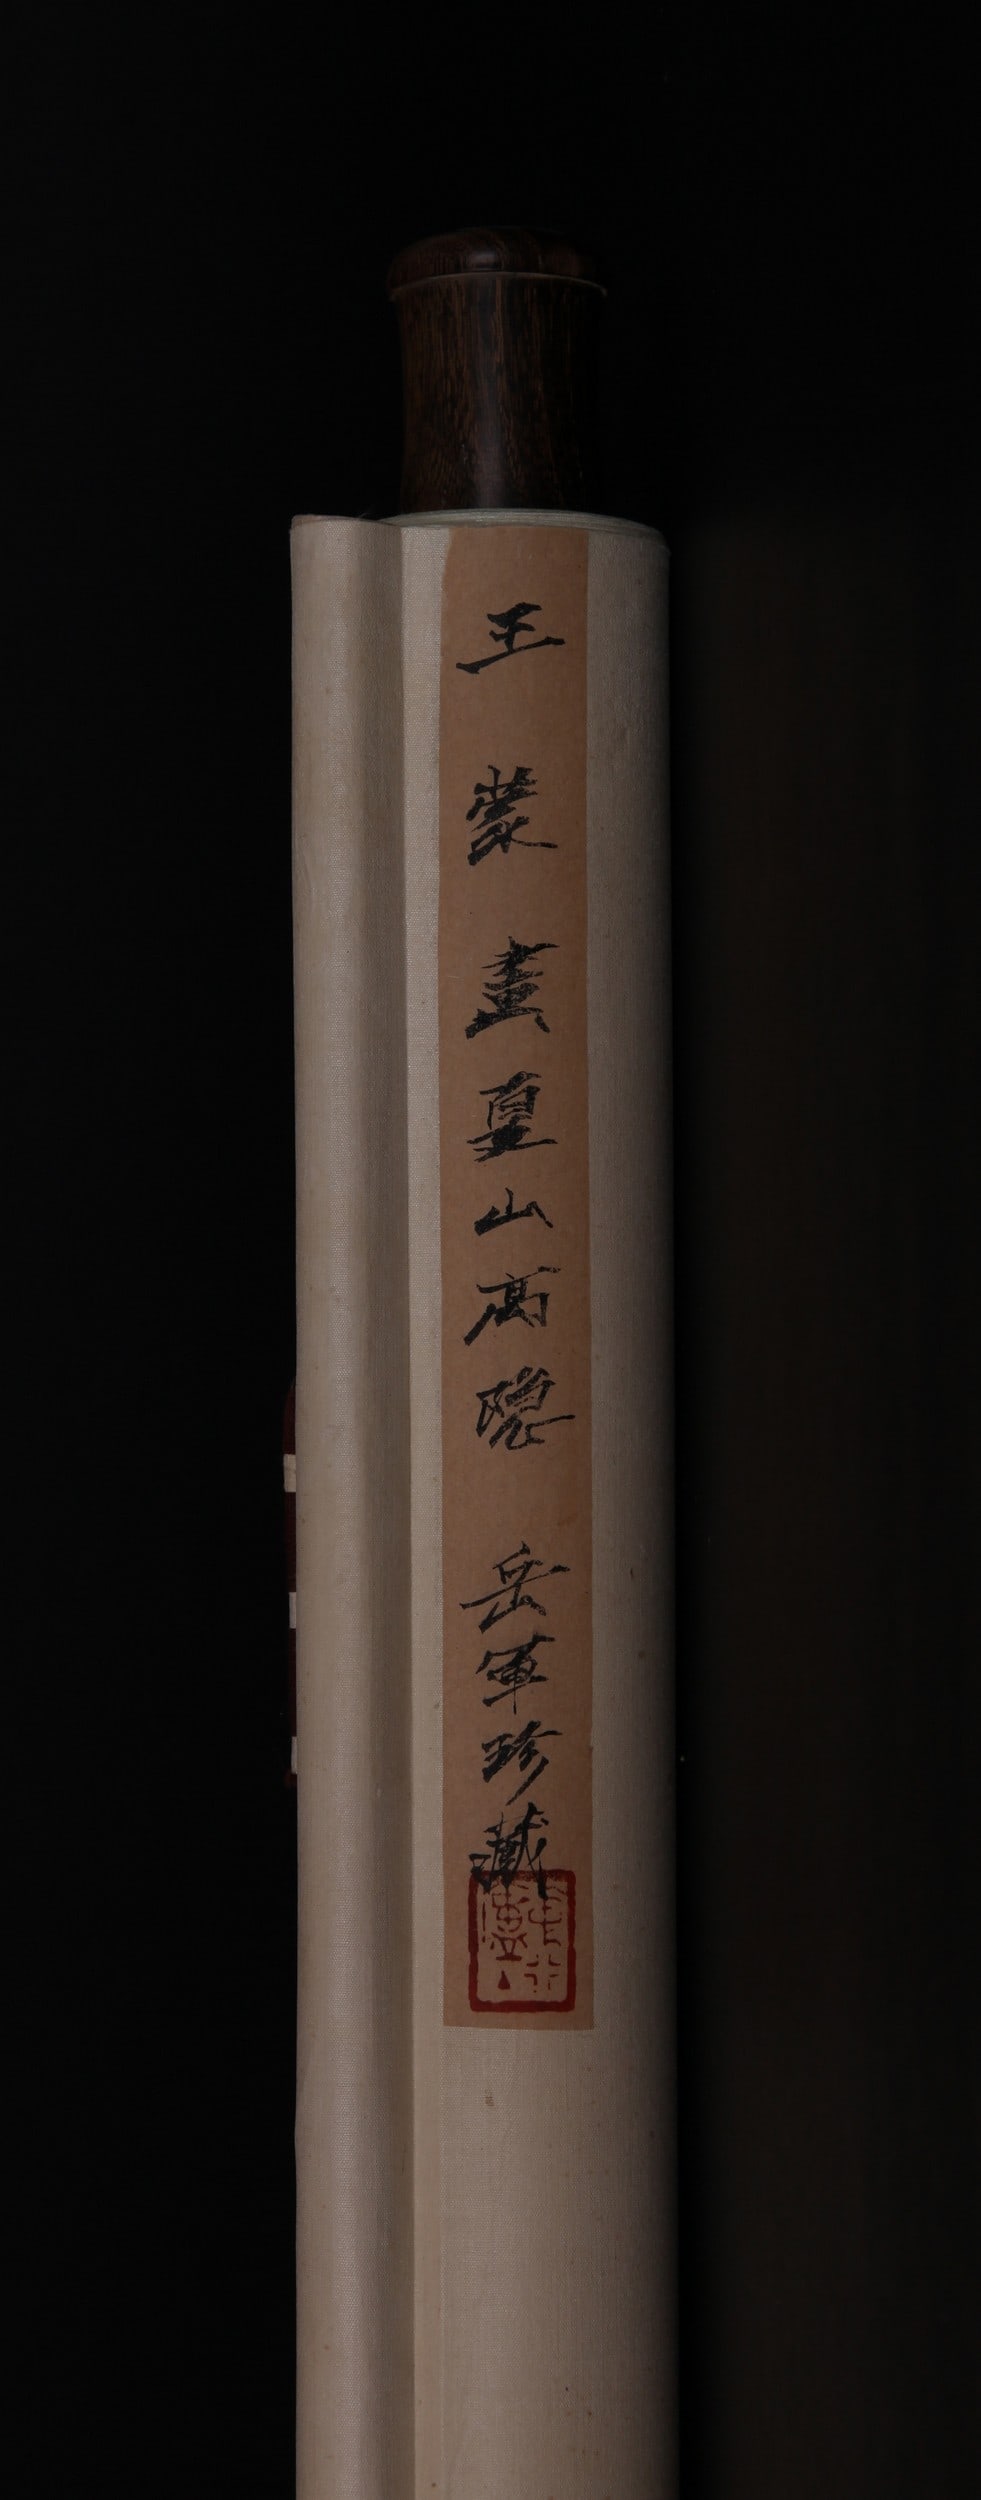 王蒙畫夏山高隱 岳軍珍藏